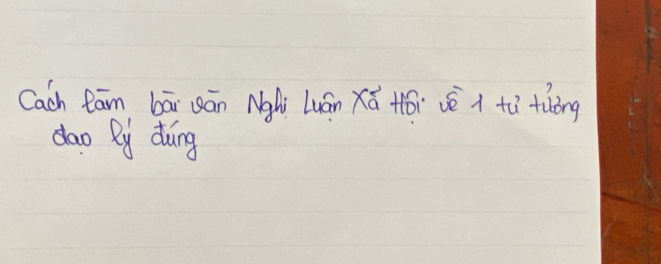 Cách làm bài văn Nghị Luận Xã Hội về 1 tư tưởng
đạo lý đúng